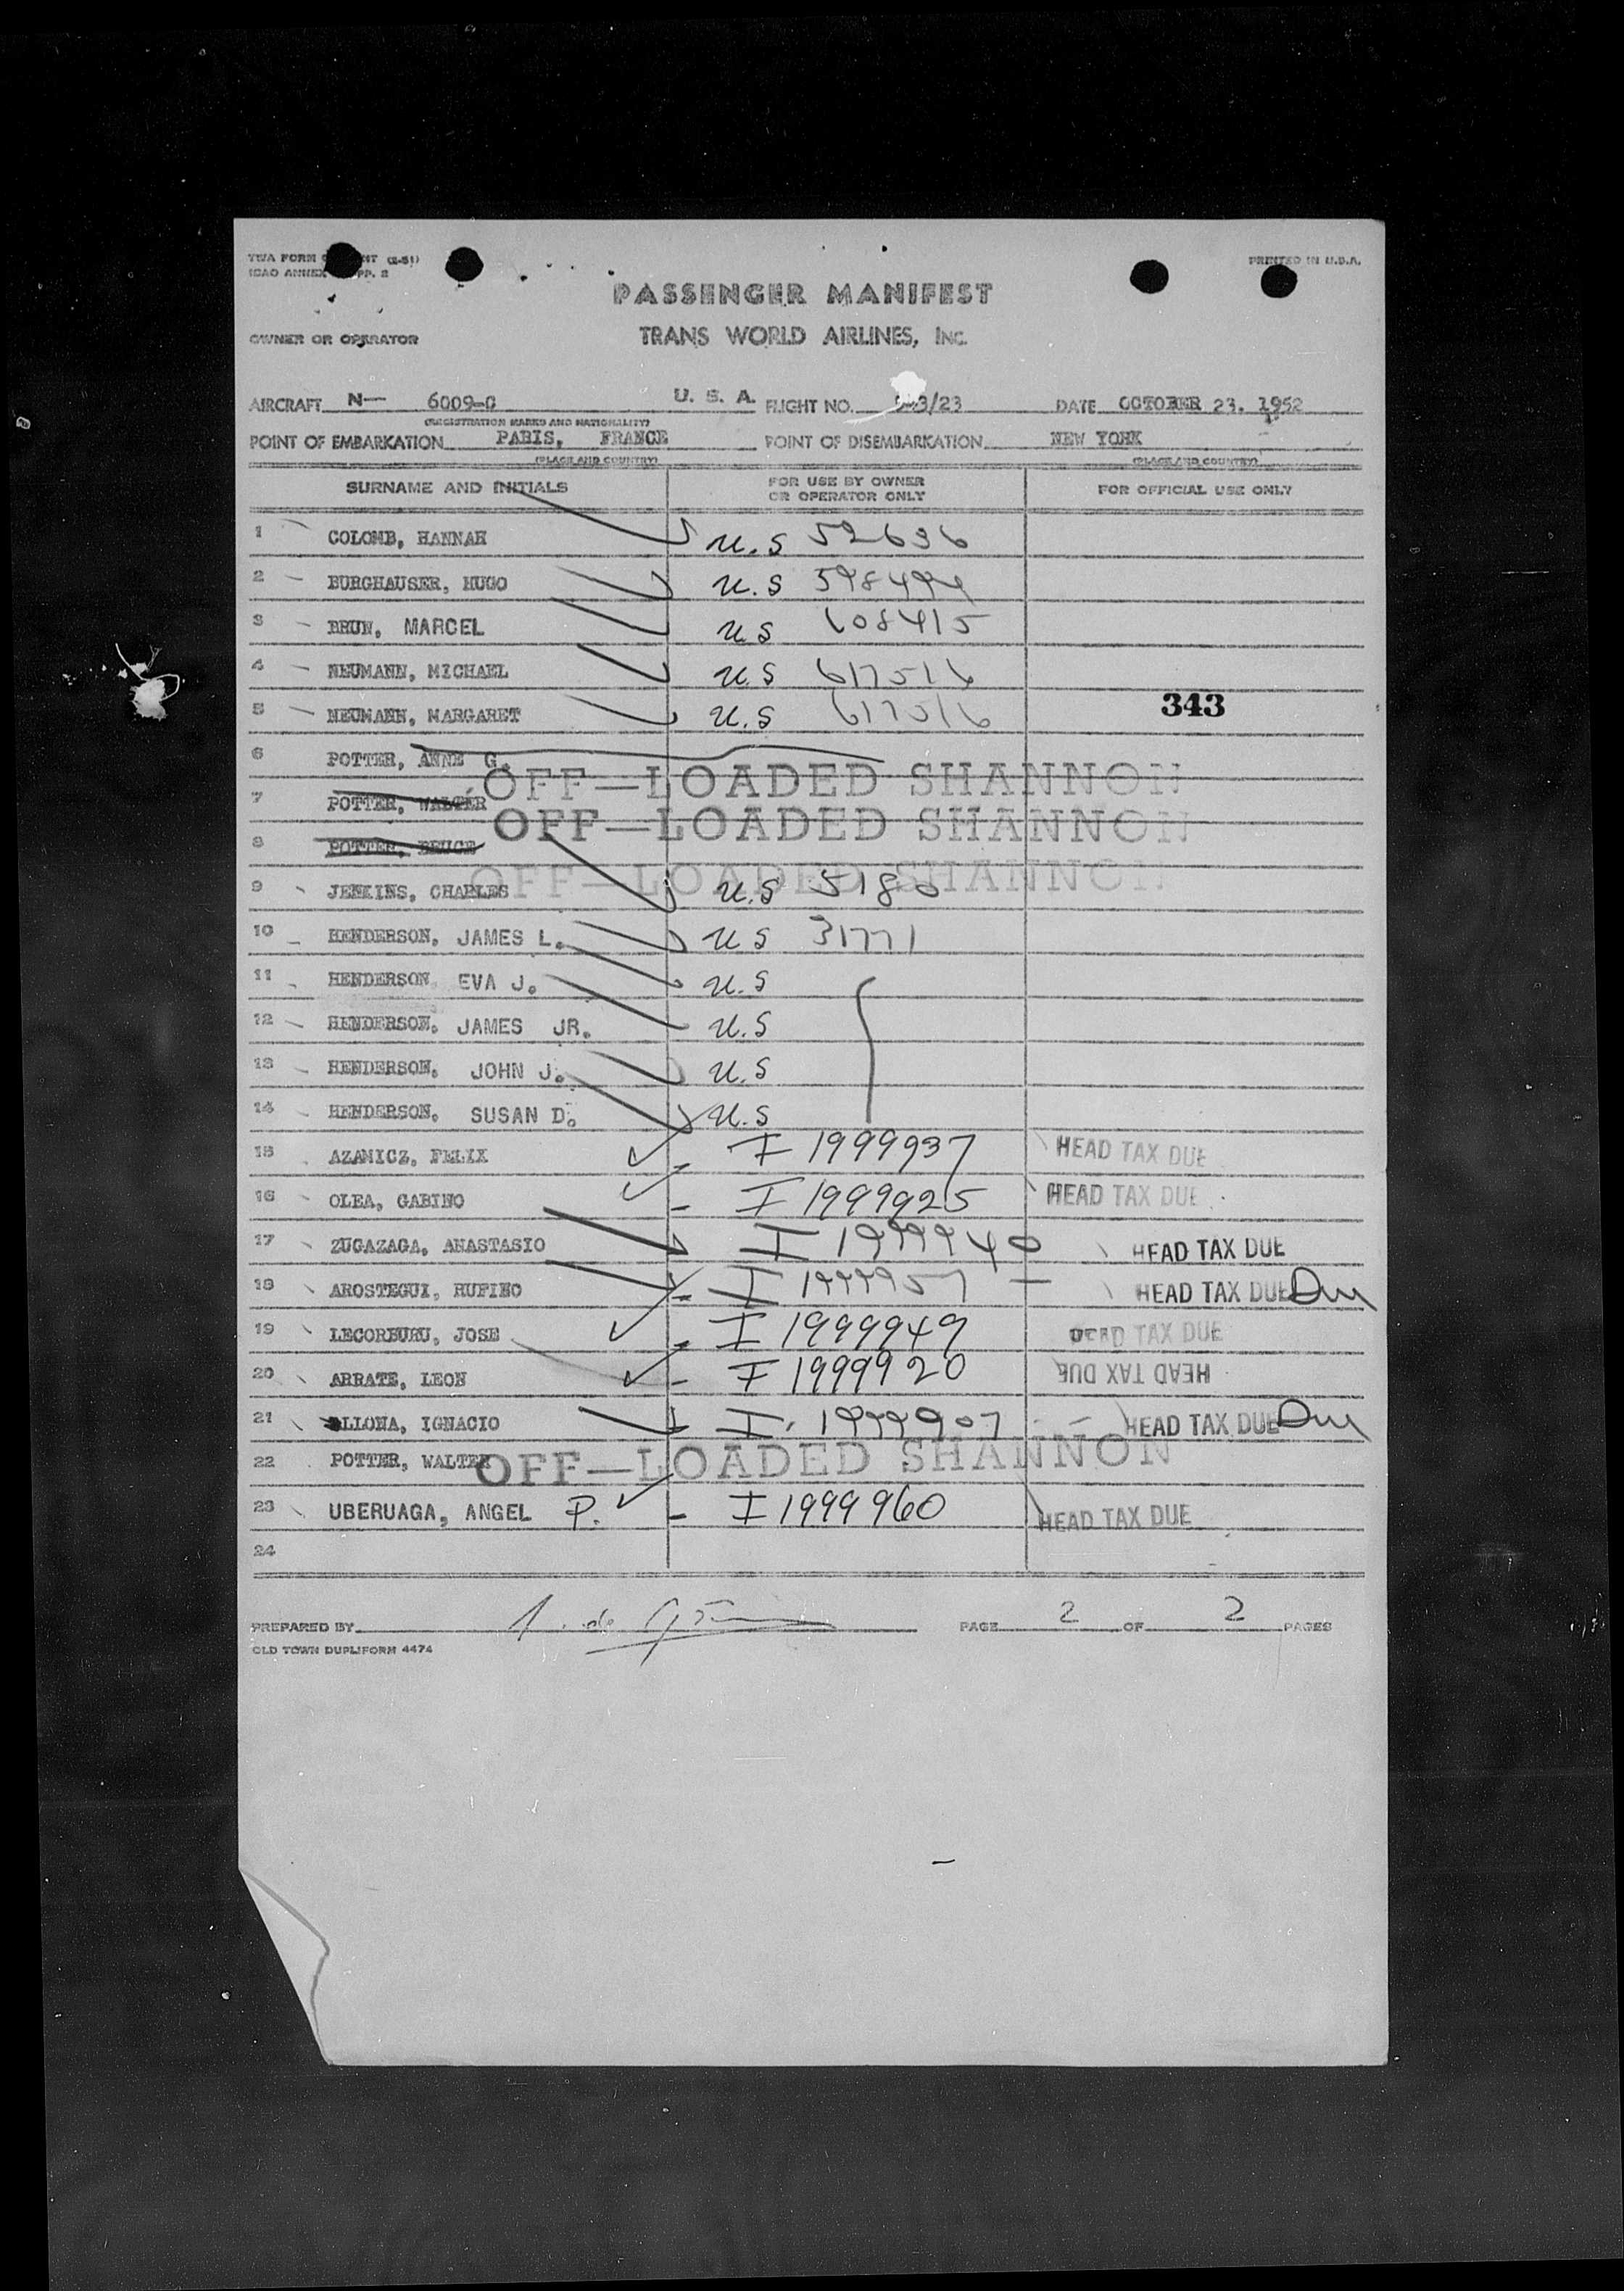 TWA FORM (2-51)
ICAO ANNEX APP. 2
PRINTED IN U.S.A.
PASSENGER MANIFEST
OWNER OR OPERATOR TRANS WORLD AIRLINES, INC.
AIRCRAFT N— 6009-C U. S. A. FLIGHT NO. 3/23 DATE OCTOBER 23. 1952
(REGISTRATION MARKS AND NATIONALITY)
POINT OF EMBARKATION PARIS, FRANCE POINT OF DISEMBARKATION NEW YORK
(PLACE AND COUNTRY) (PLACE AND COUNTRY)
SURNAME AND INITIALS FOR USE BY OWNER OR OPERATOR ONLY FOR OFFICIAL USE ONLY
1 COLOMB, HANNAH U.S 52636
2 BURGHAUSER, HUGO U.S 598494
3 BRUN, MARCEL U.S 608415
4 NEUMANN, MICHAEL U.S 617516
5 NEUMANN, MARGARET U.S 617516 343
6 POTTER, ANNE G. OFF—LOADED SHANNON
7 POTTER, WALTER OFF—LOADED SHANNON
8 POTTER, BRUCE OFF—LOADED SHANNON
9 JENKINS, CHARLES U.S 5180
10 HENDERSON, JAMES L. U.S 31771
11 HENDERSON, EVA J. U.S
12 HENDERSON, JAMES JR. U.S
13 HENDERSON, JOHN J. U.S
14 HENDERSON, SUSAN D. U.S
15 AZAMICZ, FELIX - I 1999937 HEAD TAX DUE
16 OLEA, GABINO - I 1999925 HEAD TAX DUE
17 ZUGAZAGA, ANASTASIO I 1999940 HEAD TAX DUE
18 AROSTEGUI, RUFINO - I 1999957 — HEAD TAX DUE
19 LECORBURU, JOSE - I 1999949 HEAD TAX DUE
20 ARRATE, LEON - I 1999920 HEAD TAX DUE
21 LLONA, IGNACIO I 1999907 HEAD TAX DUE
22 POTTER, WALTER OFF—LOADED SHANNON
23 UBERUAGA, ANGEL P. - I 1999960 HEAD TAX DUE
24
PREPARED BY PAGE 2 OF 2 PAGES
OLD TOWN DUPLIFORM 4474